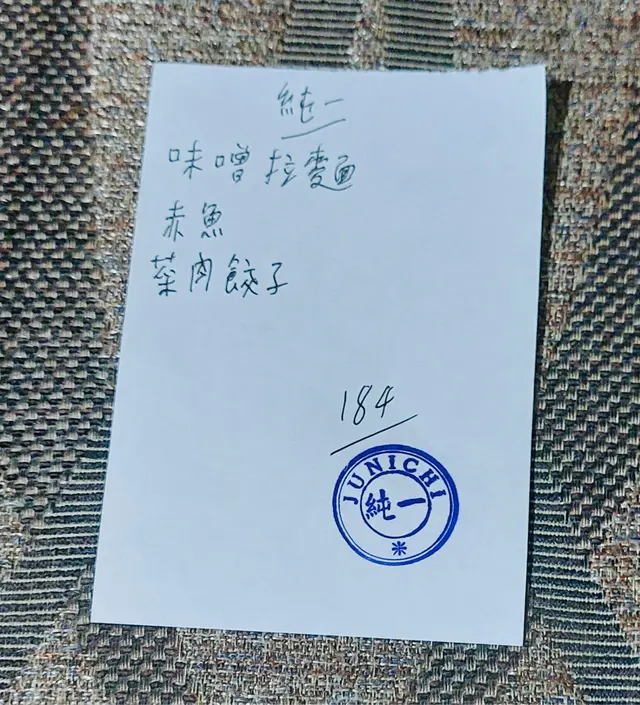 純一
味噌拉麵
赤魚
菜肉餃子
184
JUNICHI
純一